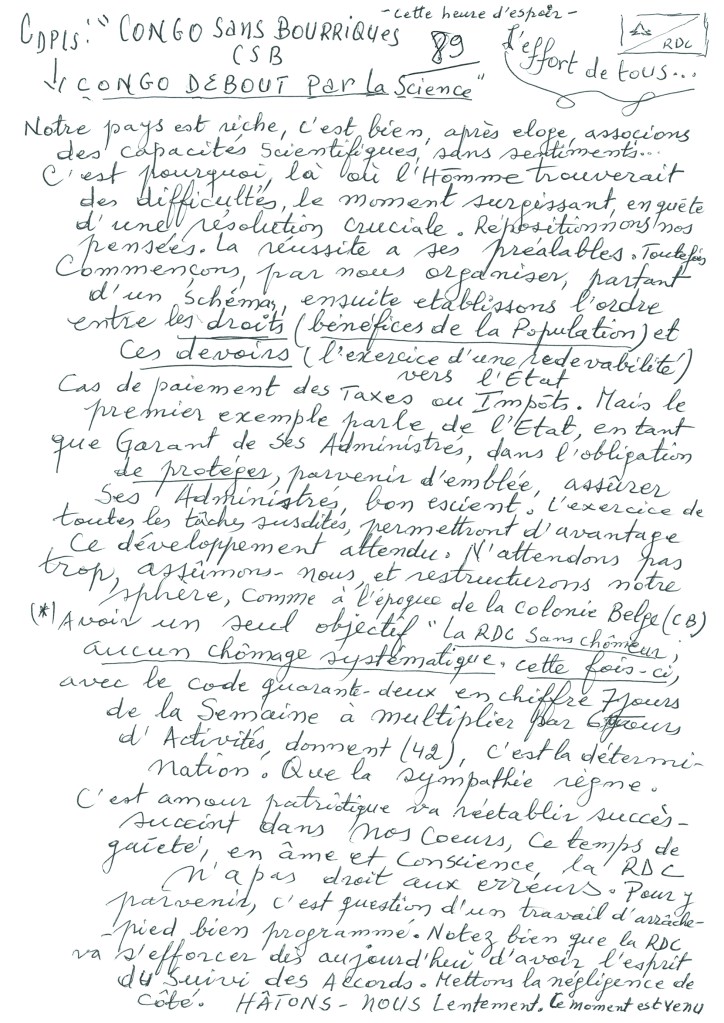 - cette heure d'espoir -
CDPLS: " CONGO SANS BOURRIQUES
CSB
89
l'effort de tous...
RDC
CONGO DEBOUT PAR La Science "
Notre pays est riche, c'est bien, après eloge, associons
des capacités Scientifiques, sans sentiments...
C'est pourquoi, là où l'Homme trouverait
des difficultés, le moment surgissant, en quête
d'une résolution cruciale. Répositionnons nos
pensées. La réussite a ses préalables. Toutefois
Commençons, par nous organiser, partant
d'un Schémas, ensuite etablissons l'ordre
entre les droits (bénéfices de la Population) et
Ces devoirs (l'exercice d'une redevabilité)
vers l'Etat
Cas de paiement des Taxes ou Impôts. Mais le
premier exemple parle de l'Etat, en tant
que Garant de Ses Administrés, dans l'obligation
de protéger, parvenir d'emblée, assûrer
Ses Administrés, bon escient. L'exercice de
toutes les tâches susdites, permettront d'avantage
Ce développement attendu. N'attendons pas
trop, assûmons-nous, et restructurons notre
sphère, comme à l'époque de la colonie Belge (CB)
(*) Avoir un seul objectif " La RDC Sans chômeur,
aucun chômage systématique. cette fois-ci,
avec le code quarante-deux en chiffre 7 jours
de la Semaine à multiplier par 6 jours
d'Activités, donnent (42), c'est la détermi-
nation. Que la sympathie règne.
C'est amour patriotique va réétablir succès-
succint dans nos Coeurs, Ce temps de
gaîeté, en âme et Conscience, la RDC
n'a pas droit aux erreurs. Pour y
parvenir, c'est question d'un travail d'arrâche-
-pied bien programmé. Notez bien que la RDC
va s'efforcer dès aujourd'hui d'avoir l'esprit
du Suivi des Accords. Mettons la négligence de
côté. HÂTONS-NOUS Lentement. Le moment est venu